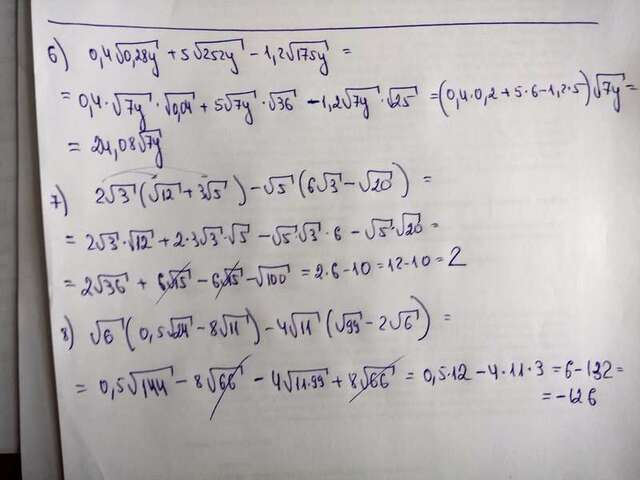 6) 0,4√0,28y + 5√252y − 1,2√175y =
= 0,4 · √7y · √0,04 + 5√7y · √36 − 1,2√7y · √25 = (0,4 · 0,2 + 5 · 6 − 1,2 · 5)√7y =
= 24,08√7y
7) 2√3 (√12 + 3√5) − √5 (6√3 − √20) =
= 2√3 · √12 + 2 · 3√3 · √5 − √5 · √3 · 6 − √5 · √20 =
= 2√36 + 6√15 − 6√15 − √100 = 2 · 6 − 10 = 12 − 10 = 2
8) √6 (0,5√24 − 8√11) − 4√11 (√99 − 2√6) =
= 0,5√144 − 8√66 − 4√11·99 + 8√66 = 0,5 · 12 − 4 · 11 · 3 = 6 − 132 =
= −126